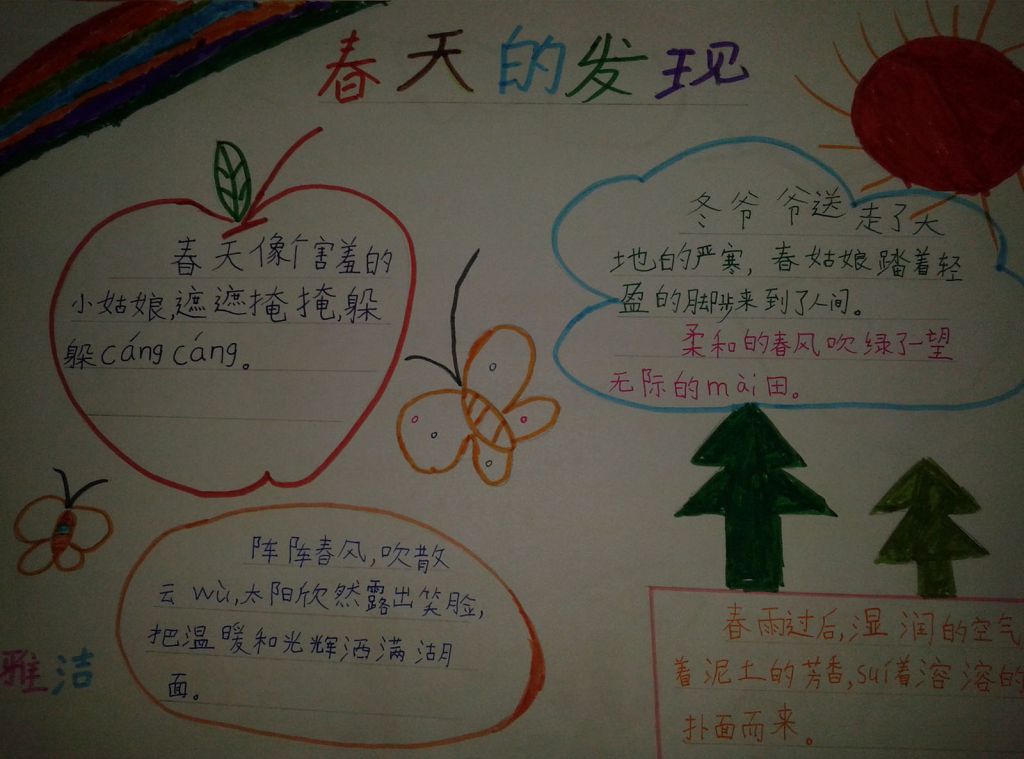 春天的发现
春天像个害羞的
小姑娘,遮遮掩掩,躲
躲cáng cáng。
冬爷爷送走了大
地的严寒,春姑娘踏着轻
盈的脚步来到了人间。
柔和的春风吹绿了一望
无际的mài田。
阵阵春风,吹散
云wù,太阳欣然露出笑脸,
把温暖和光辉洒满湖
面。
雅洁
春雨过后,湿润的空气
着泥土的芳香,suí着溶溶的
扑面而来。